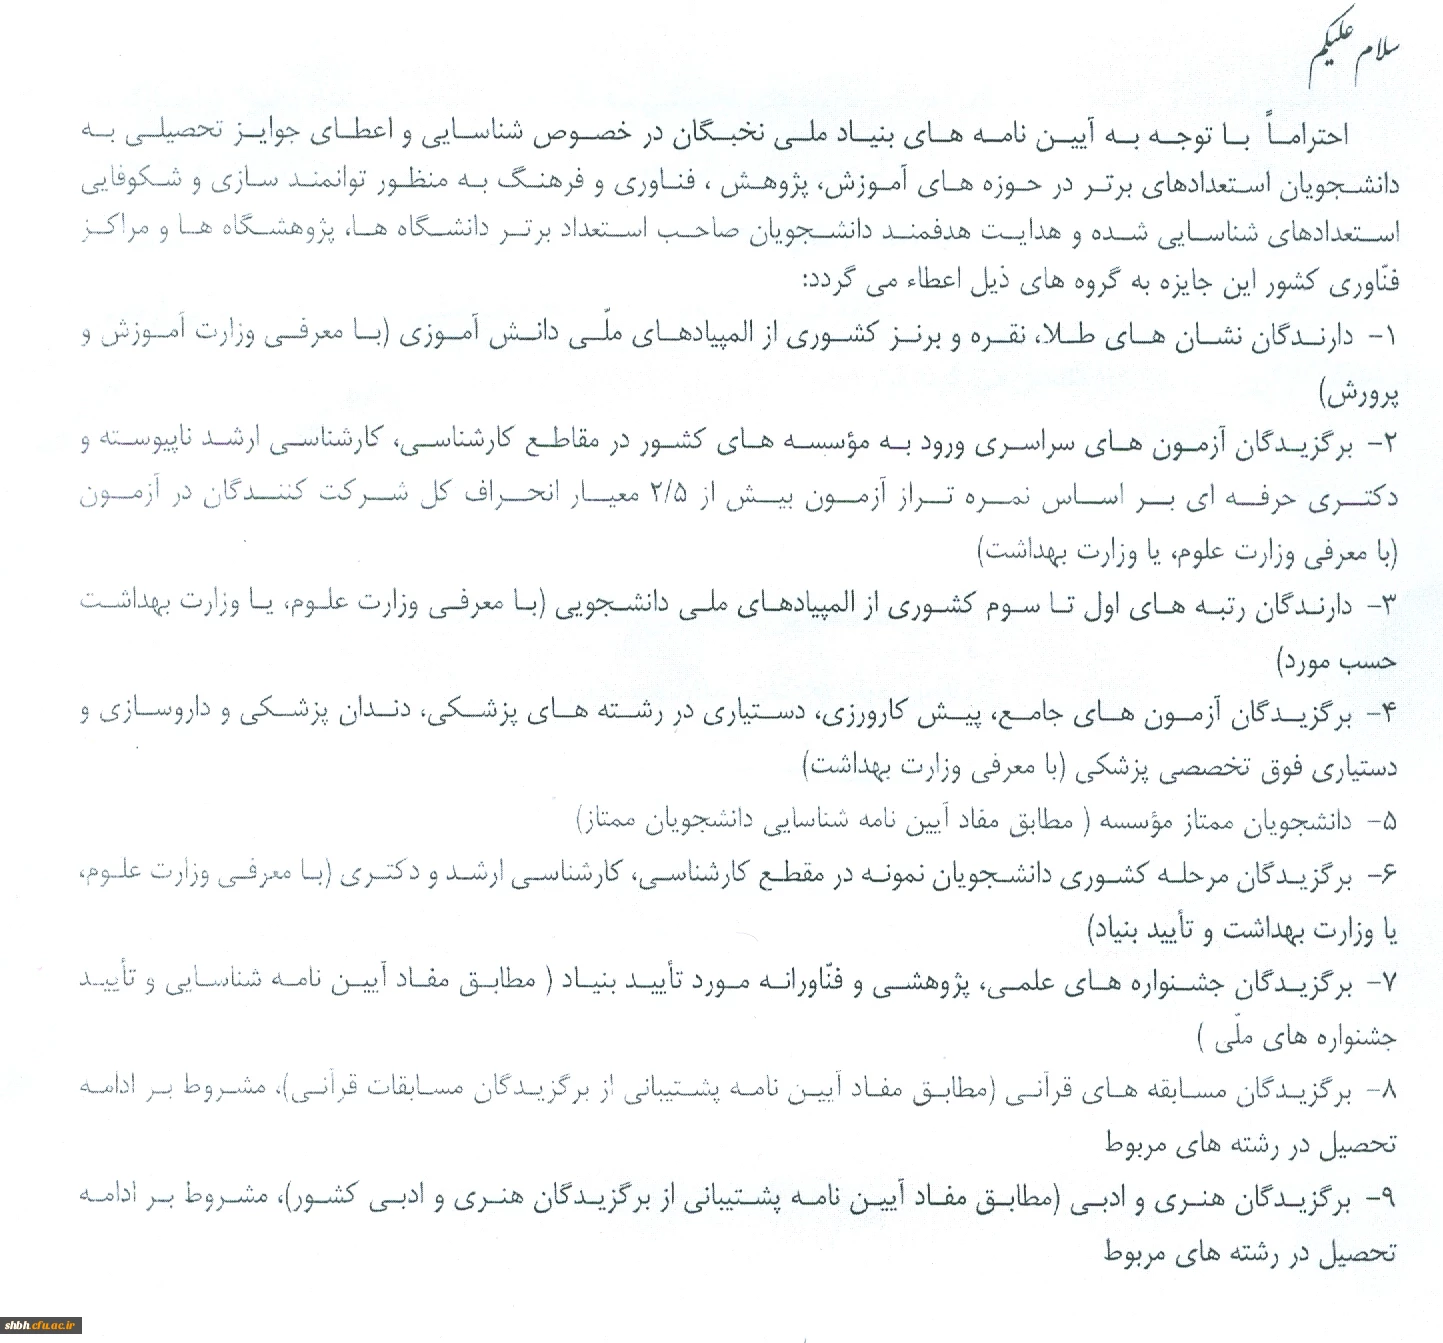 سلام علیکم
احتراماً با توجه به آیین نامه های بنیاد ملی نخبگان در خصوص شناسایی و اعطای جوایز تحصیلی به
دانشجویان استعدادهای برتر در حوزه های آموزش، پژوهش ، فناوری و فرهنگ به منظور توانمند سازی و شکوفایی
استعدادهای شناسایی شده و هدایت هدفمند دانشجویان صاحب استعداد برتر دانشگاه ها، پژوهشگاه ها و مراکز
فنّاوری کشور این جایزه به گروه های ذیل اعطاء می گردد:
۱- دارندگان نشان های طلا، نقره و برنز کشوری از المپیادهای ملّی دانش آموزی (با معرفی وزارت آموزش و
پرورش)
۲- برگزیدگان آزمون های سراسری ورود به مؤسسه های کشور در مقاطع کارشناسی، کارشناسی ارشد ناپیوسته و
دکتری حرفه ای بر اساس نمره تراز آزمون بیش از ۲/۵ معیار انحراف کل شرکت کنندگان در آزمون
(با معرفی وزارت علوم، یا وزارت بهداشت)
۳- دارندگان رتبه های اول تا سوم کشوری از المپیادهای ملی دانشجویی (با معرفی وزارت علوم، یا وزارت بهداشت
حسب مورد)
۴- برگزیدگان آزمون های جامع، پیش کارورزی، دستیاری در رشته های پزشکی، دندان پزشکی و داروسازی و
دستیاری فوق تخصصی پزشکی (با معرفی وزارت بهداشت)
۵- دانشجویان ممتاز مؤسسه ( مطابق مفاد آیین نامه شناسایی دانشجویان ممتاز)
۶- برگزیدگان مرحله کشوری دانشجویان نمونه در مقطع کارشناسی، کارشناسی ارشد و دکتری (با معرفی وزارت علوم،
یا وزارت بهداشت و تأیید بنیاد)
۷- برگزیدگان جشنواره های علمی، پژوهشی و فنّاورانه مورد تأیید بنیاد ( مطابق مفاد آیین نامه شناسایی و تأیید
جشنواره های ملّی )
۸- برگزیدگان مسابقه های قرآنی (مطابق مفاد آیین نامه پشتیبانی از برگزیدگان مسابقات قرآنی)، مشروط بر ادامه
تحصیل در رشته های مربوط
۹- برگزیدگان هنری و ادبی (مطابق مفاد آیین نامه پشتیبانی از برگزیدگان هنری و ادبی کشور)، مشروط بر ادامه
تحصیل در رشته های مربوط
shbh.cfu.ac.ir